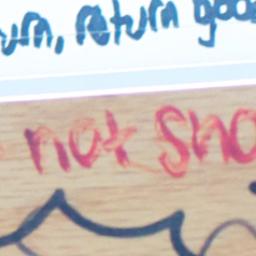 urn, return good
not sho